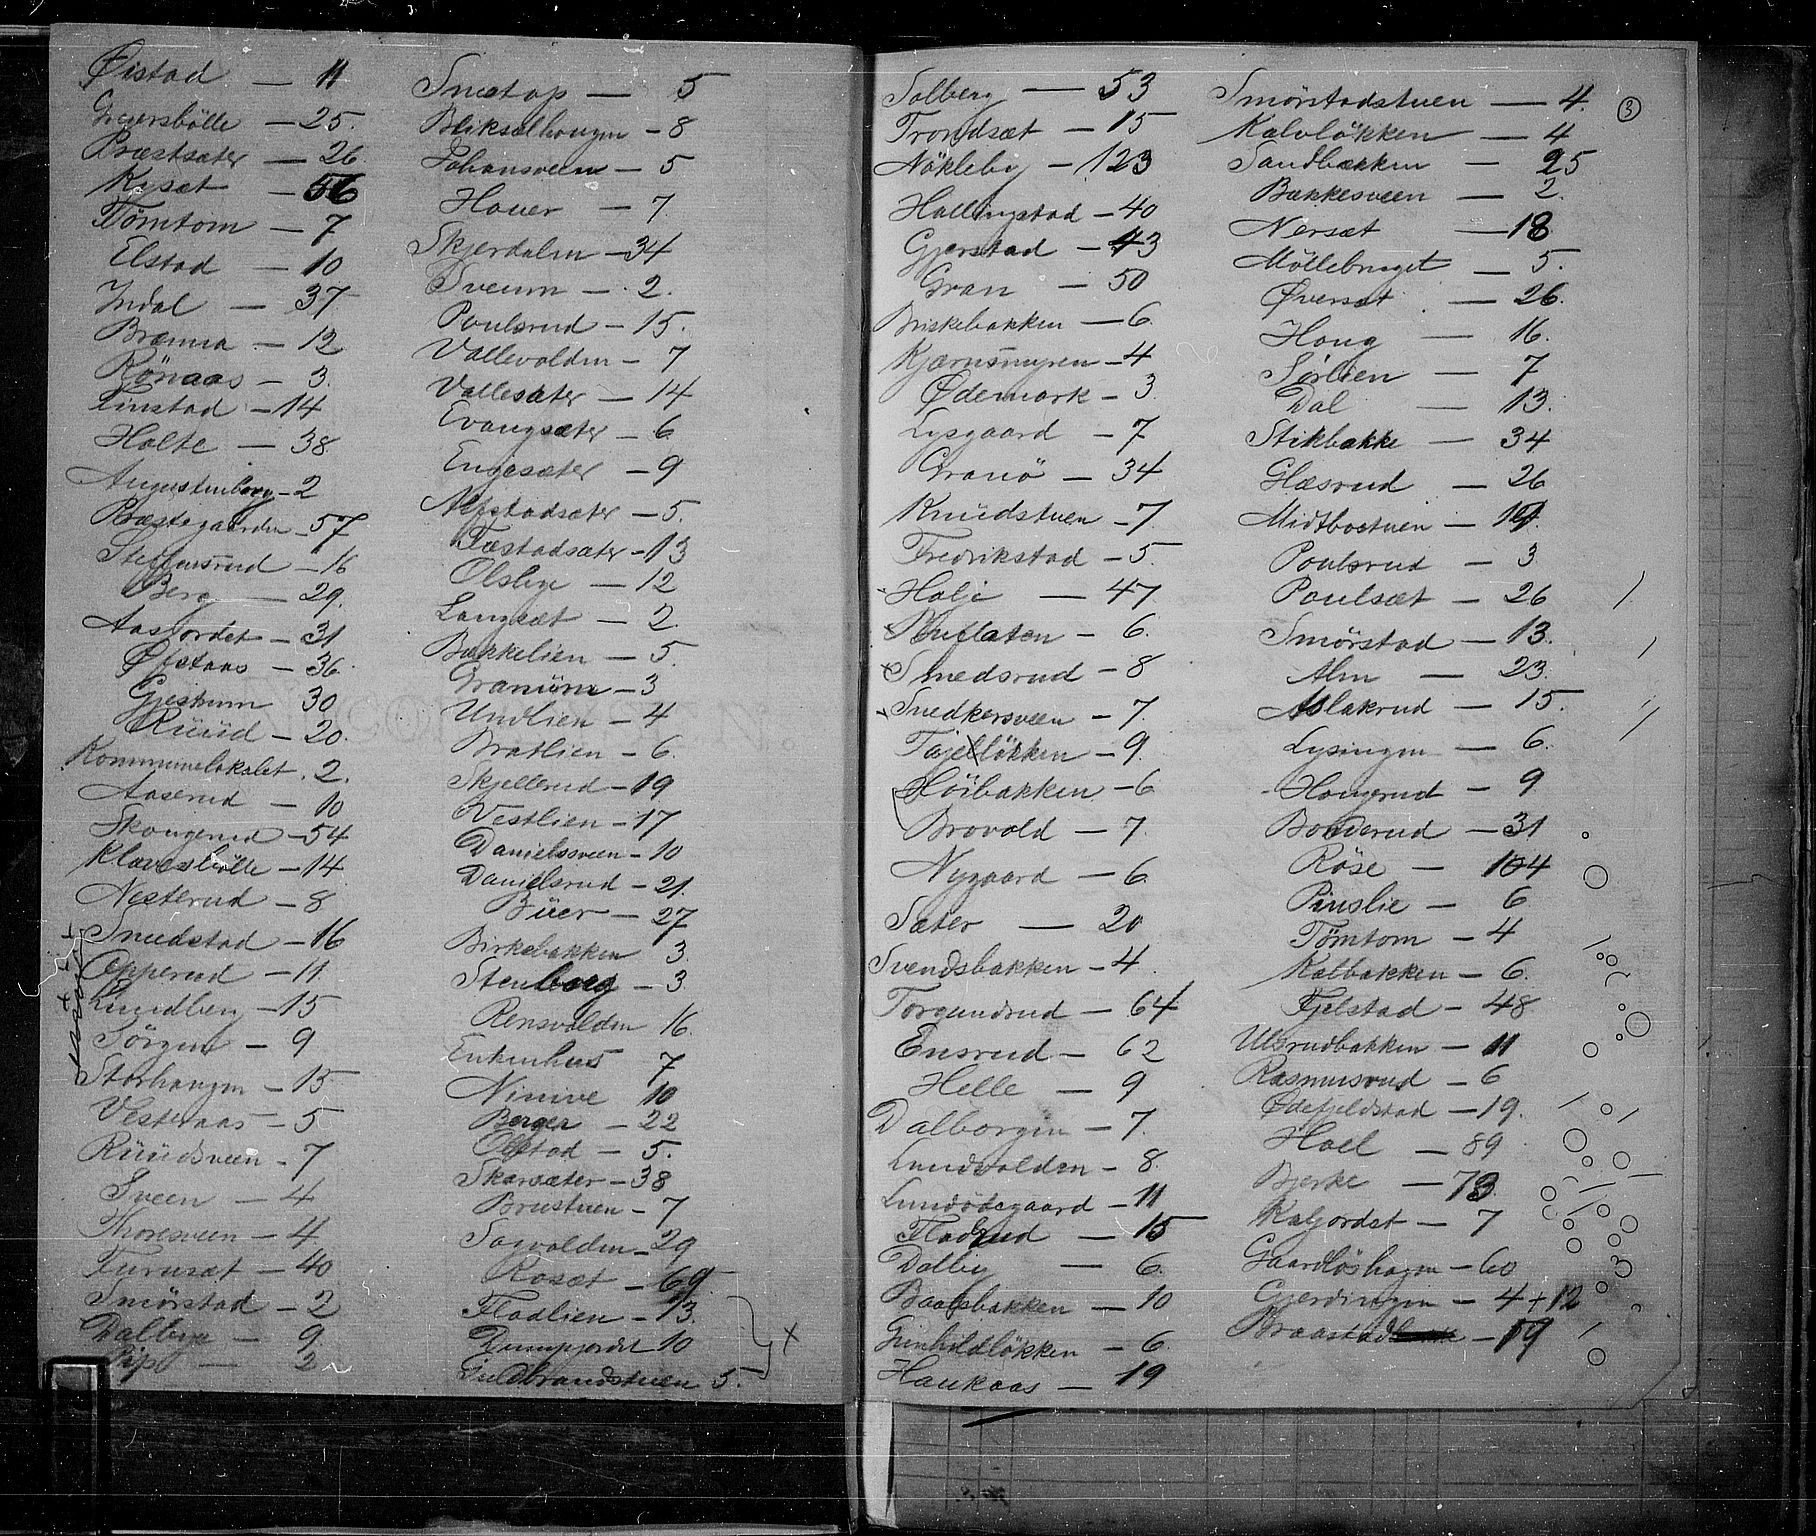 Øistad — 11
Greversbölle — 25.
Præstsæter — 26.
Kisæt — 56
Tömtom — 7
Elstad — 10
Indal — 37.
Brænna — 12
Rönaas — 3.
Linstad — 14
Holte — 38
Augustenborg — 2
Præstegaarden — 57
Steffensrud — 16
Berg — 29.
Aasjordet — 31
Øfstaas — 36.
Gjestrum 30
Rüüd — 20.
Kommunelokalet . 2.
Aaserud — 10
Skougerud — 54
Klævesbölle — 14
Nesterud — 8
Smedstad — 16
Opperud — 11
Lundby — 15
Sörgen — 9
Storhaugen — 15
Vesteraas — 5
Rüüdsveen — 7
Sveen — 4
Thoresveen — 4
Furusæt — 40
Smörstad — 2
Dalbye — 9
Pip — 2
Snetop — 5
Bliksethaugen — 8
Johansveen — 5
Hover — 7.
Skjerdalen — 34
Sveum — 2.
Poulsrud — 15.
Vallevolden — 7
Vallesæter — 14
Evangsæter — 6
Engesæter — 9
Alfstadsæter — 5.
Tæstadsæter — 13
Olsbye — 12
Langsæt — 2.
Bakkelien — 5.
Granüm — 3
Undlien — 4
Bratlien — 6.
Skjellerud — 19
Vestlien — 17
Danielssveen — 10
Danielsrud — 21.
Büer — 27
Birkebakken 3.
Stenborg — 3.
Rensvolden 16.
Enkenhus 7
Ninive 10
Berger — 22
Olstad — 5.
Skarsæter — 38
Brustuen — 7
Sagvolden — 29
Rosæt — 69.
Fladlien — 13.
Dumpjordet 10
Guldbrandstuen 5.
Solberg — 53
Trondsæt — 15
Nökleby — 123
Hallingstad — 40
Gjerstad — 43
Gran — 50
Briskebakken — 6.
Kjærnsmyren — 4
Ødemark — 3.
Lysgaard — 7
Granö — 34
Knüdstuen — 7.
Fredrikstad — 5.
Holje — 47
Bruflaten — 6.
Smedsrud — 8
Snedkersveen — 7.
Tajetlökken — 9.
Höibakken — 6
Brovold — 7.
Nygaard — 6.
Sæter — 20
Svendsbakken — 4.
Torgundrud — 64
Ensrud — 62
Helle — 9
Dalborgen — 7.
Lundvolden — 8.
Lundödegaard — 11
Fladrud — 15
Dalby — 6.
Baalsbakken — 10
Grinholdlökken — 6.
Haukaas — 19
3
Smörstadstuen — 4.
Kalvlökken — 4
Sandbækken — 25
Bakkesveen — 2.
Nersæt — 18
Möllebruget — 5.
Øversæt — 26.
Houg — 16.
Sörlien — 7
Dal — 13.
Stikbakke — 34
Glæsrud — 26
Midtbøstuen — 19.
Poulsrud — 3
Poulsæt — 26
Smörstad — 13.
Alm — 23.
Aslakrud — 15.
Lysingen — 6.
Hougerud — 9
Bonderud — 31
Röse — 104
Pinslie — 6
Tömtom — 4
Katbakken — 6.
Fjelstad — 48
Ulsrudbakken — 11
Rasmusrud — 6
Ødefjeldstad — 19.
Hoel — 89
Bjerke — 73.
Kaljordet — 7
Gaardløshagen — 60
Gjerdingen — 4 + 12
Braastad — 19